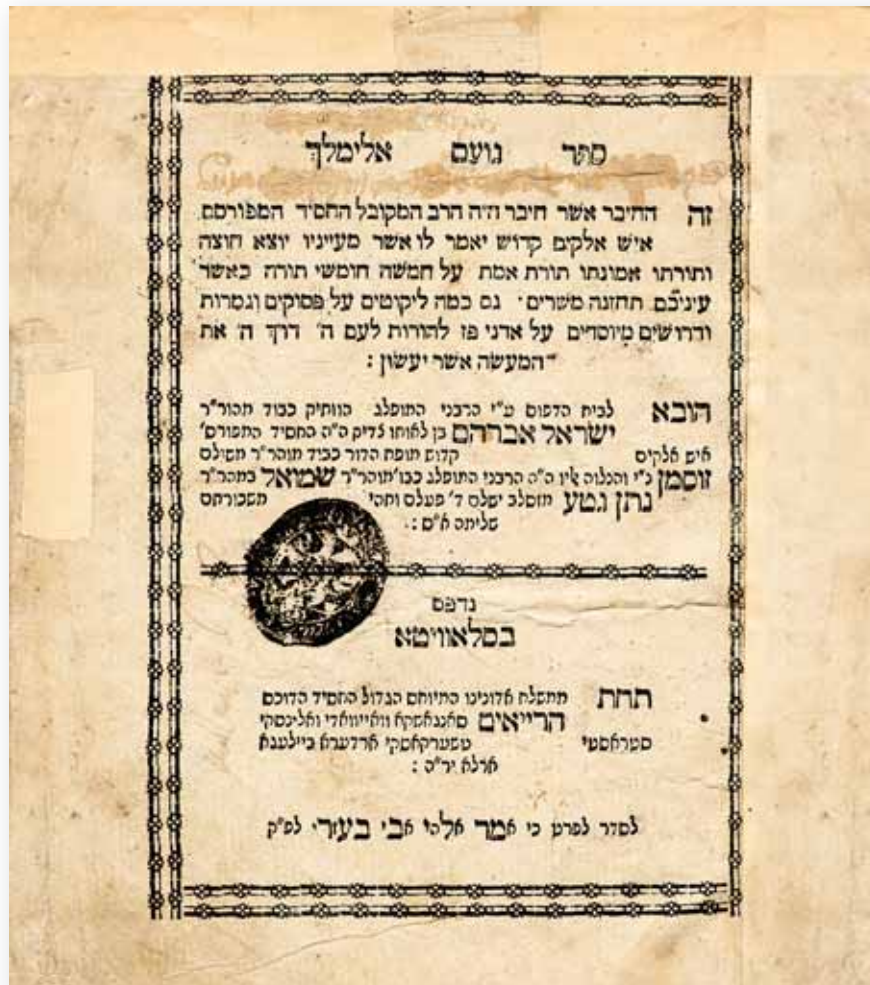 ספר נועם אלימלך
זה החיבר אשר חיבר ה״ה הרב המקובל החסיד המפורסם
איש אלקים קדוש יאמר לו אשר מעייניו יוצא חוצה
ותורתו אמונתו תורת אמת על חמשה חומשי תורה כאשר
עיניכם תחזנה משרים· גם כמה ליקוטים על פסוקים וגמרות
ודרושים מיוסדים על אדני פז להורות לעם ה׳ דרך ה׳ את
המעשה אשר יעשון :
הובא לבית הדפוס ע״י הרבני המופלג הוותיק כבוד מהור״ר
ישראל אברהם בן לאותו צדיק ה״ה החסיד המפורס׳
איש אלקים קדוש מופת הדור כבוד מוהר״ר משולם
זוסמן נ״י והנלוה אליו ה״ה הרבני המופלג כבו׳ מוהר״ר שמואל במהר״ר
נתן נטע ישלם ד׳ פעלם ותהי משכורתם
שלימה א״ס :
נדפס
בסלאוויטא
תחת ממשלת אדונינו המיוחס הגדול החסיד הדוכס
הרייאים סאנגאשקא וואייוואדי וואלינסקי
סטראסטי טשערקאסקי ארדערא ביילעגא
ארלא יר״ה :
לסדר לפרט כי אמר אלהי אבי בעזרי לפ״ק